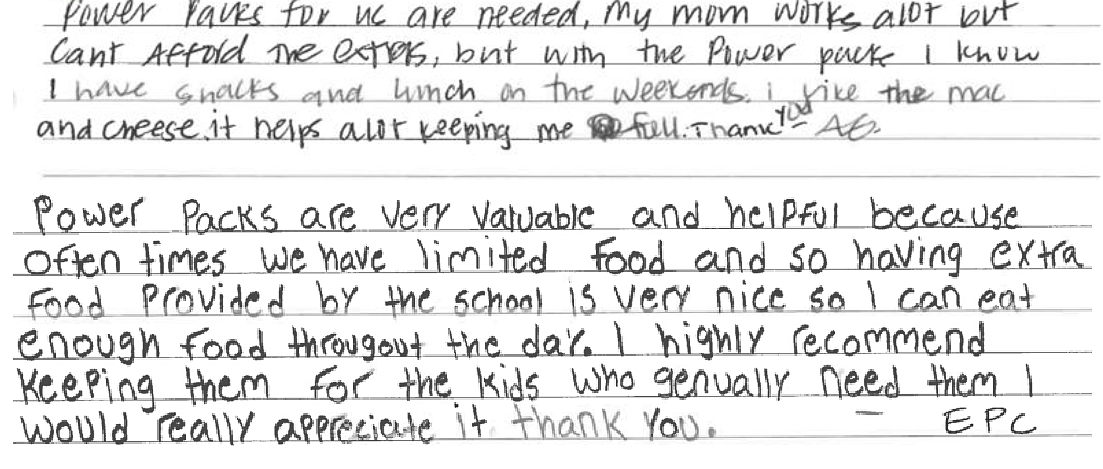 Power Packs for uc are needed, My mom works alot but
Cant Affold The extras, but with the Power pack I know
I have snacks and lunch on the weekends. i like the mac
and cheese. it helps alot keeping me full. Thank You - AG.
Power Packs are very valuable and helpful because
often times we have limited food and so having extra
food Provided by the school is very nice so I can eat
enough food througout the day. I highly recommend
Keeping them for the kids who genually need them I
would really appreciate it thank You. - EPC